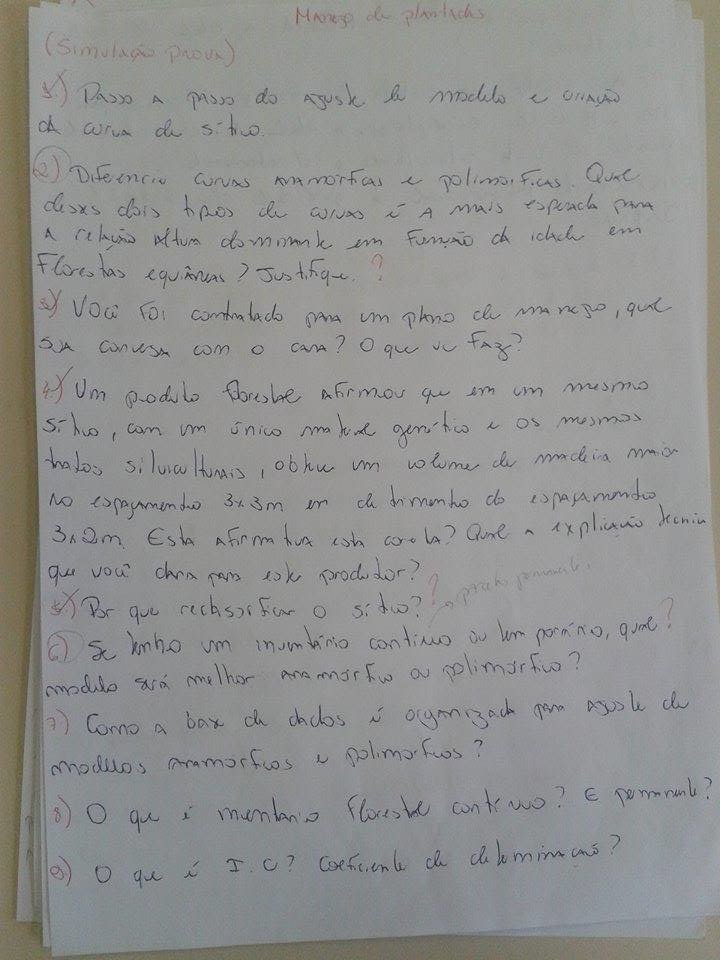 Manejo de plantadas
(Simulação prova)
1) Passo a passo do ajuste de modelo e criação
da curva de sítio.
2) Diferencie curvas anamórficas e polimórficas. Qual
desses dois tipos de curvas é a mais esperada para
a relação altura dominante em função da idade em
Florestas equiâneas? Justifique. ?
3) Você foi contratado para um plano de manejo, qual
sua conversa com o cara? O que vc faz?
4) Um produto florestal afirmou que em um mesmo
sítio, com um único material genético e os mesmos
tratos silviculturais, obteve um volume de madeira maior
no espaçamento 3x3m em detrimento do espaçamento
3x2m. Esta afirmativa está correta? Qual a explicação técnica
que você daria para este produtor?
5) Por que reclassificar o sítio? ?
6) Se tenho um inventário contínuo ou temporário, qual ?
modelo será melhor anamórfico ou polimórfico?
7) Como a base de dados é organizada para ajuste de
modelos anamórficos e polimórficos?
8) O que é inventário florestal contínuo? E permanente?
9) O que é I.C? Coeficiente de determinação?